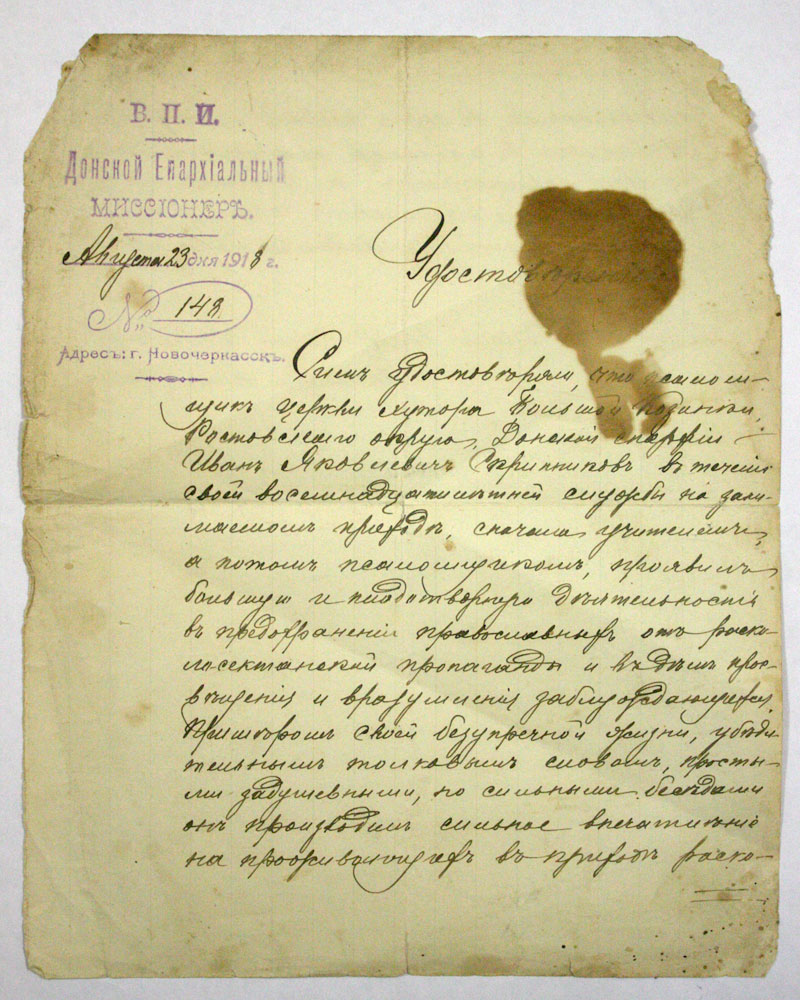 В. П. И.
Донской Епархіальный
МИССІОНЕРЪ.
Августа 23 дня 1918 г.
№ 148
Адресъ: г. Новочеркасскъ.
Удостовѣреніе
Симъ удостовѣряю, что псалом-
щикъ церкви хутора Большой Козинки,
Ростовскаго округа, Донской епархіи
Иванъ Яковлевичъ Скрипниковъ въ теченіе
своей восемнадцатилѣтней службы на зани-
маемомъ приходѣ, сначала учителемъ,
а потомъ псаломщикомъ, проявилъ
большую и плодотворную дѣятельность
въ предохраненіи православныхъ отъ раско-
лосектанской пропаганды и въ дѣлѣ прос-
вѣщенія и вразумленія заблуждающихся.
Примѣромъ своей безупречной жизни, убѣди-
тельнымъ толковымъ словомъ, просты-
ми задушевными, но сильными бесѣдами
онъ производилъ сильное впечатлѣніе
на проживающихъ въ приходѣ раско-